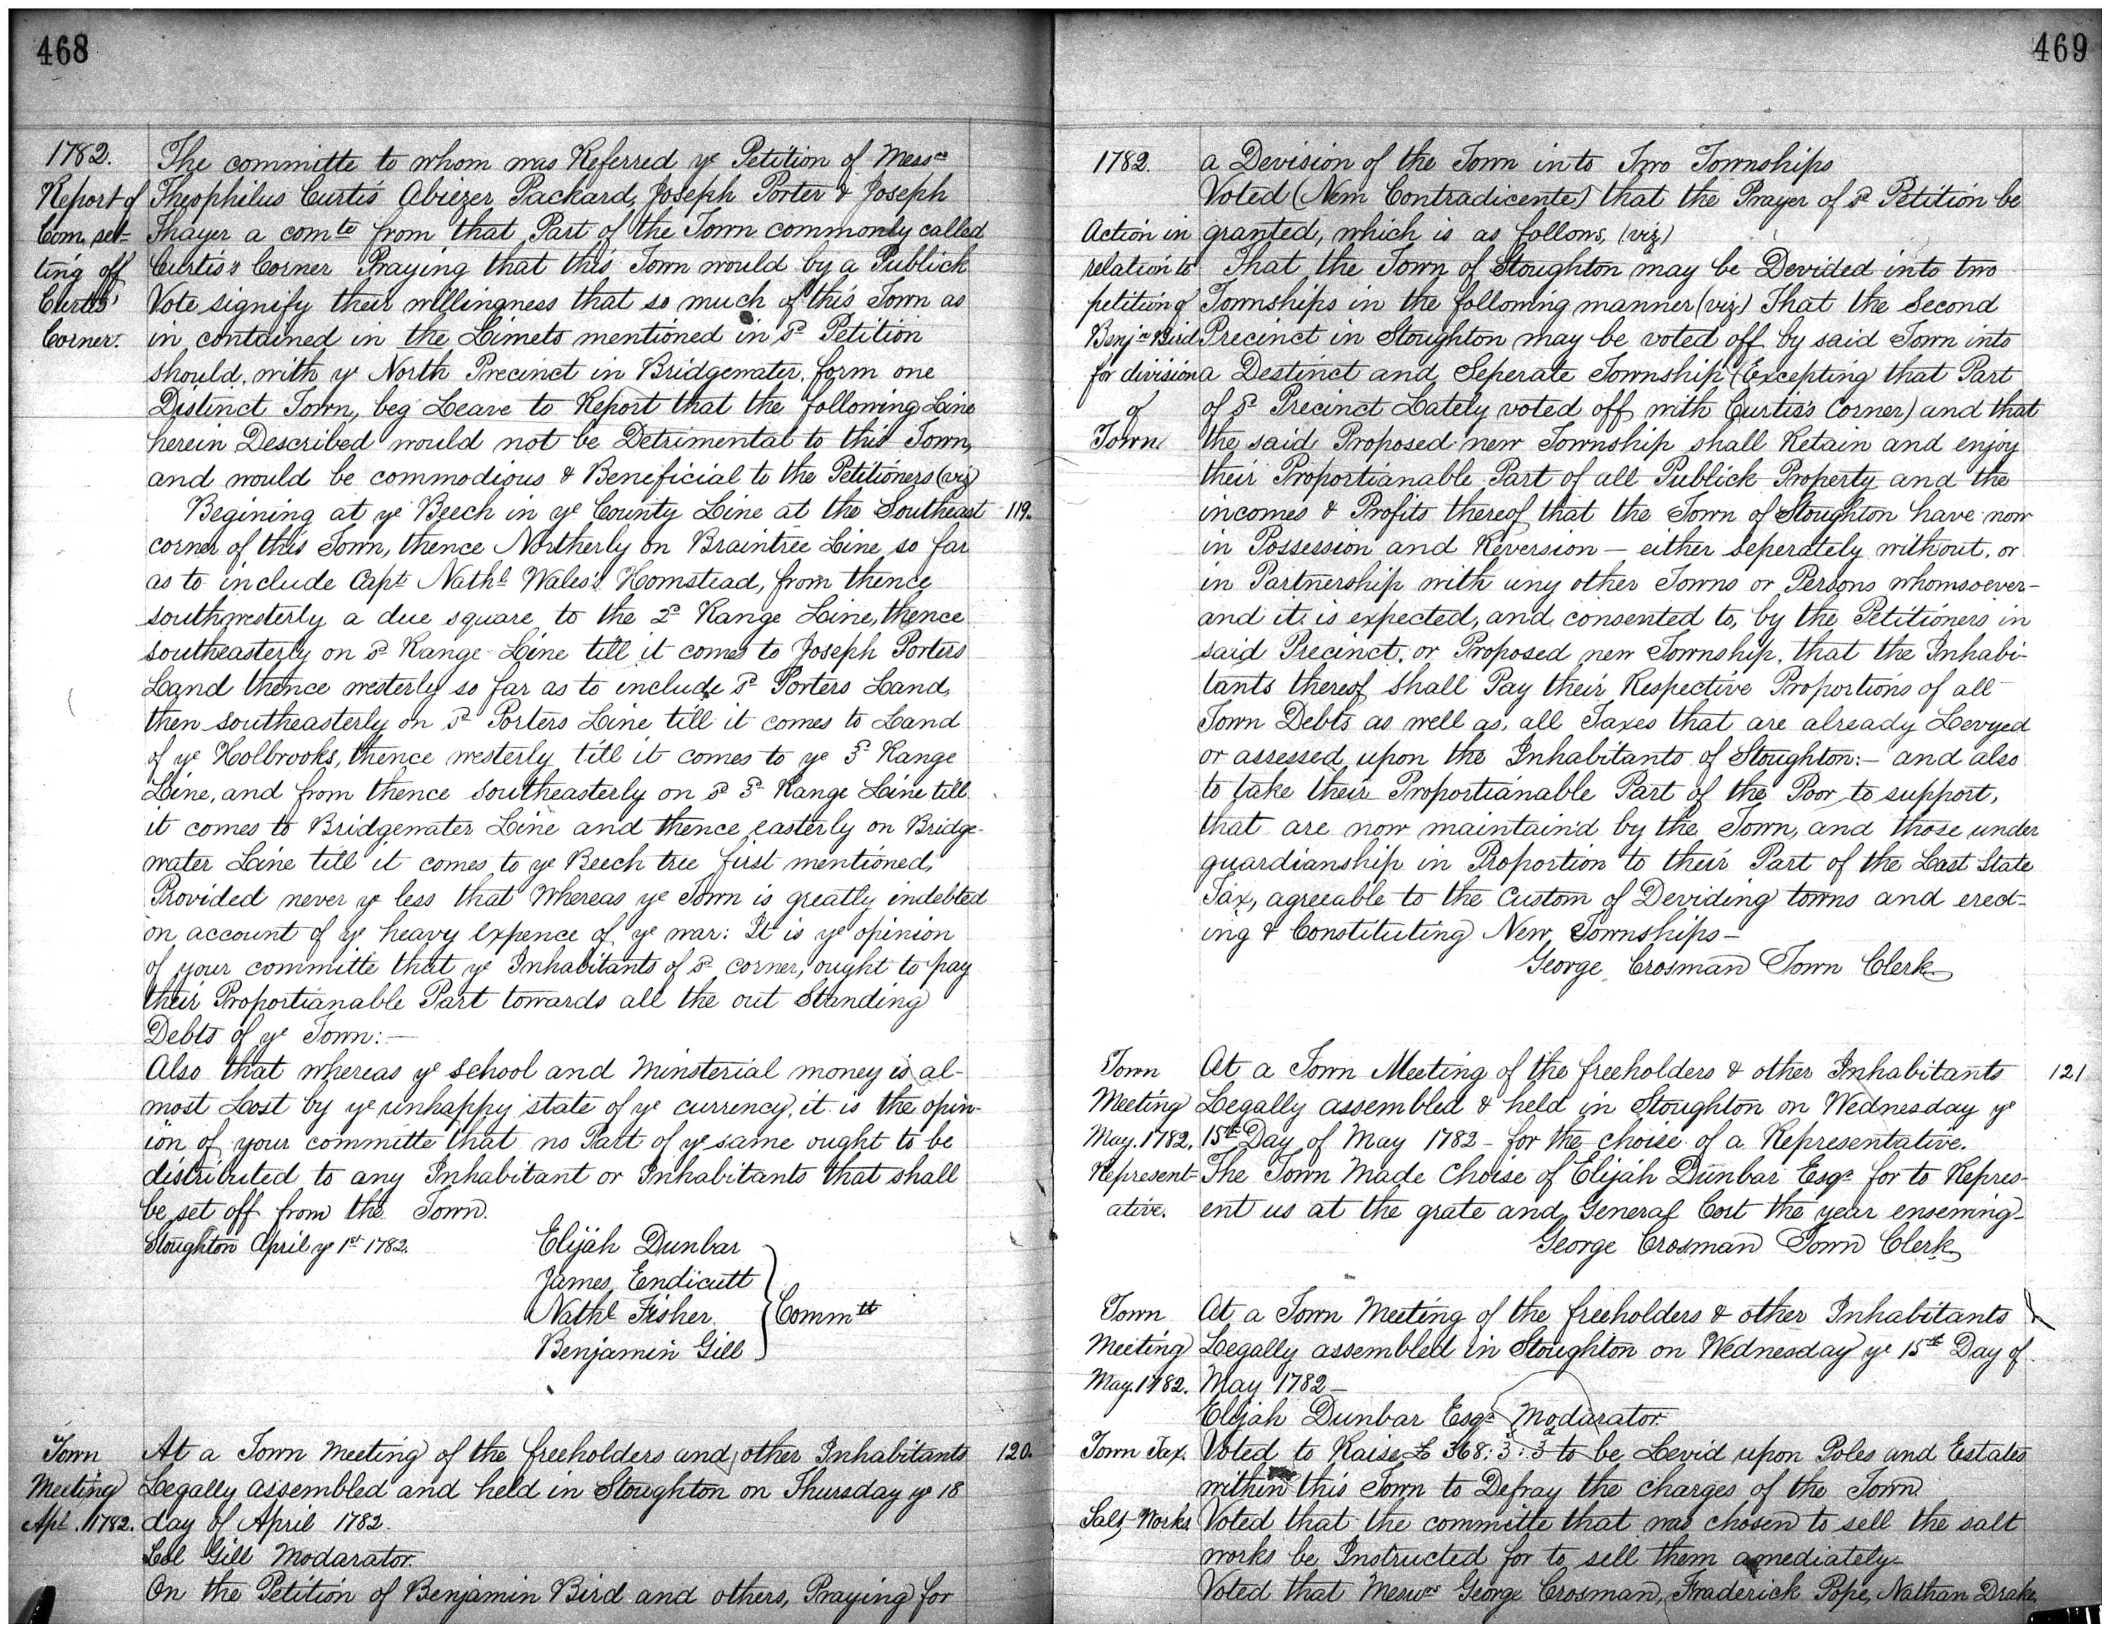 468
1782.
Report of
Com. set-
ting off
Curtis'
Corner.
The committe to whom was Referred ye Petition of Mess rs
Theophilus Curtis Abiezer Packard, Joseph Porter & Joseph
Thayer a comte from that Part of the Town commonly called
Curtis's Corner Praying that this Town would by a Publick
Vote signify their willingness that so much of this Town as
in contained in the Limets mentioned in sd Petition
should, with ye North Precinct in Bridgewater, form one
Distinct Town, beg Leave to Report that the following Line
herein Described would not be Detrimental to this Town,
and would be commodious & Beneficial to the Petitioners (viz)
Begining at ye Beech in ye County Line at the Southeast 119.
corner of this Town, thence Northerly on Braintree Line, so far
as to include Capt Nathl Wales's Homstead, from thence
southwesterly a due square to the 2d Range Line, thence
southeasterly on sd Range Line till it comes to Joseph Porters
Land thence westerly so far as to include sd Porters Land,
then southeasterly on sd Porters Line till it comes to Land
of ye Holbrooks, thence westerly till it comes to ye 3d Range
Line, and from thence southeasterly on sd 3d Range Line till
it comes to Bridgewater Line and thence easterly on Bridge-
water Line till it comes to ye Beech tree first mentioned,
Provided never ye less that Whereas ye Town is greatly indebted
on account of ye heavy expence of ye war: It is ye opinion
of your committe that ye Inhabitants of sd corner, ought to pay
their Proportianable Part towards all the out Standing
Debts of ye Town:—
Also that whereas ye school and Ministerial money is al-
most Lost by ye unhappy state of ye currency, it is the opin-
ion of your committe that no Part of ye same ought to be
distributed to any Inhabitant or Inhabitants that shall
be set off from the Town.
Stoughton April ye 1st 1782.
Elijah Dunbar
James Endicutt
Nathl Fisher
Benjamin Gill
Committ
Town
Meeting
Apl. 1782.
At a Town meeting of the freeholders and other Inhabitants 120.
Legally assembled and held in Stoughton on Thursday ye 18
day of April 1782.
Col Gill Modarator.
On the Petition of Benjamin Bird and others, Praying for
469
1782.
Action in
relation to
petition of
Benjn Bird
for division
of
Town.
a Devision of the Town into Two Townships
Voted (Nem Contradicente) that the Prayer of sd Petition be
granted, which is as follows, (viz)
That the Town of Stoughton may be Devided into two
Townships in the following manner (viz) That the Second
Precinct in Stoughton may be voted off by said Town into
a Destinct and Seperate Township (Excepting that Part
of sd Precinct Lately voted off with Curtis's Corner) and that
the said Proposed new Township shall Retain and enjoy
their Proportianable Part of all Publick Property and the
incomes & Profits thereof that the Town of Stoughton have now
in Possession and Reversion — either seperately without, or
in Partnership with any other Towns or Persons whomsoever—
and it is expected, and consented to, by the Petitioners in
said Precinct, or Proposed new Township, that the Inhabi-
tants thereof shall Pay their Respective Proportions of all
Town Debts as well as, all Taxes that are already Levyed
or assessed upon the Inhabitants of Stoughton:— and also
to take their Proportianable Part of the Poor to support,
that are now maintaind by the Town, and those under
guardianship in Proportion to their Part of the Last State
Tax, agreeable to the Custom of Deviding towns and ered-
ing & Constituting New Townships—
George Crosman Town Clerk
Town
Meeting
May. 1782.
Represent-
ative.
At a Town Meeting of the freeholders & other Inhabitants 121
Legally assembled & held in Stoughton on Wednesday ye
15th Day of May 1782 - for the choise of a Representative.
The Town Made Choise of Elijah Dunbar Esqr for to Repres-
ent us at the grate and General Cort the year ensewing—
George Crosman Town Clerk
Town
Meeting
May. 1782.
At a Town Meeting of the freeholders & other Inhabitants
Legally assembled in Stoughton on Wednesday ye 15th Day of
May 1782—
Elijah Dunbar Esqr Modarator
Town Tax. Voted to Raise £ 368: 3: 3d to be Levid upon Poles and Estates
within this Town to Defray the charges of the Town
Salt-Works. Voted that the committe that was chosen to sell the salt
works be Instructed for to sell them amediately—
Voted that Messrs George Crosman, Fraderick Pope, Nathan Drake,